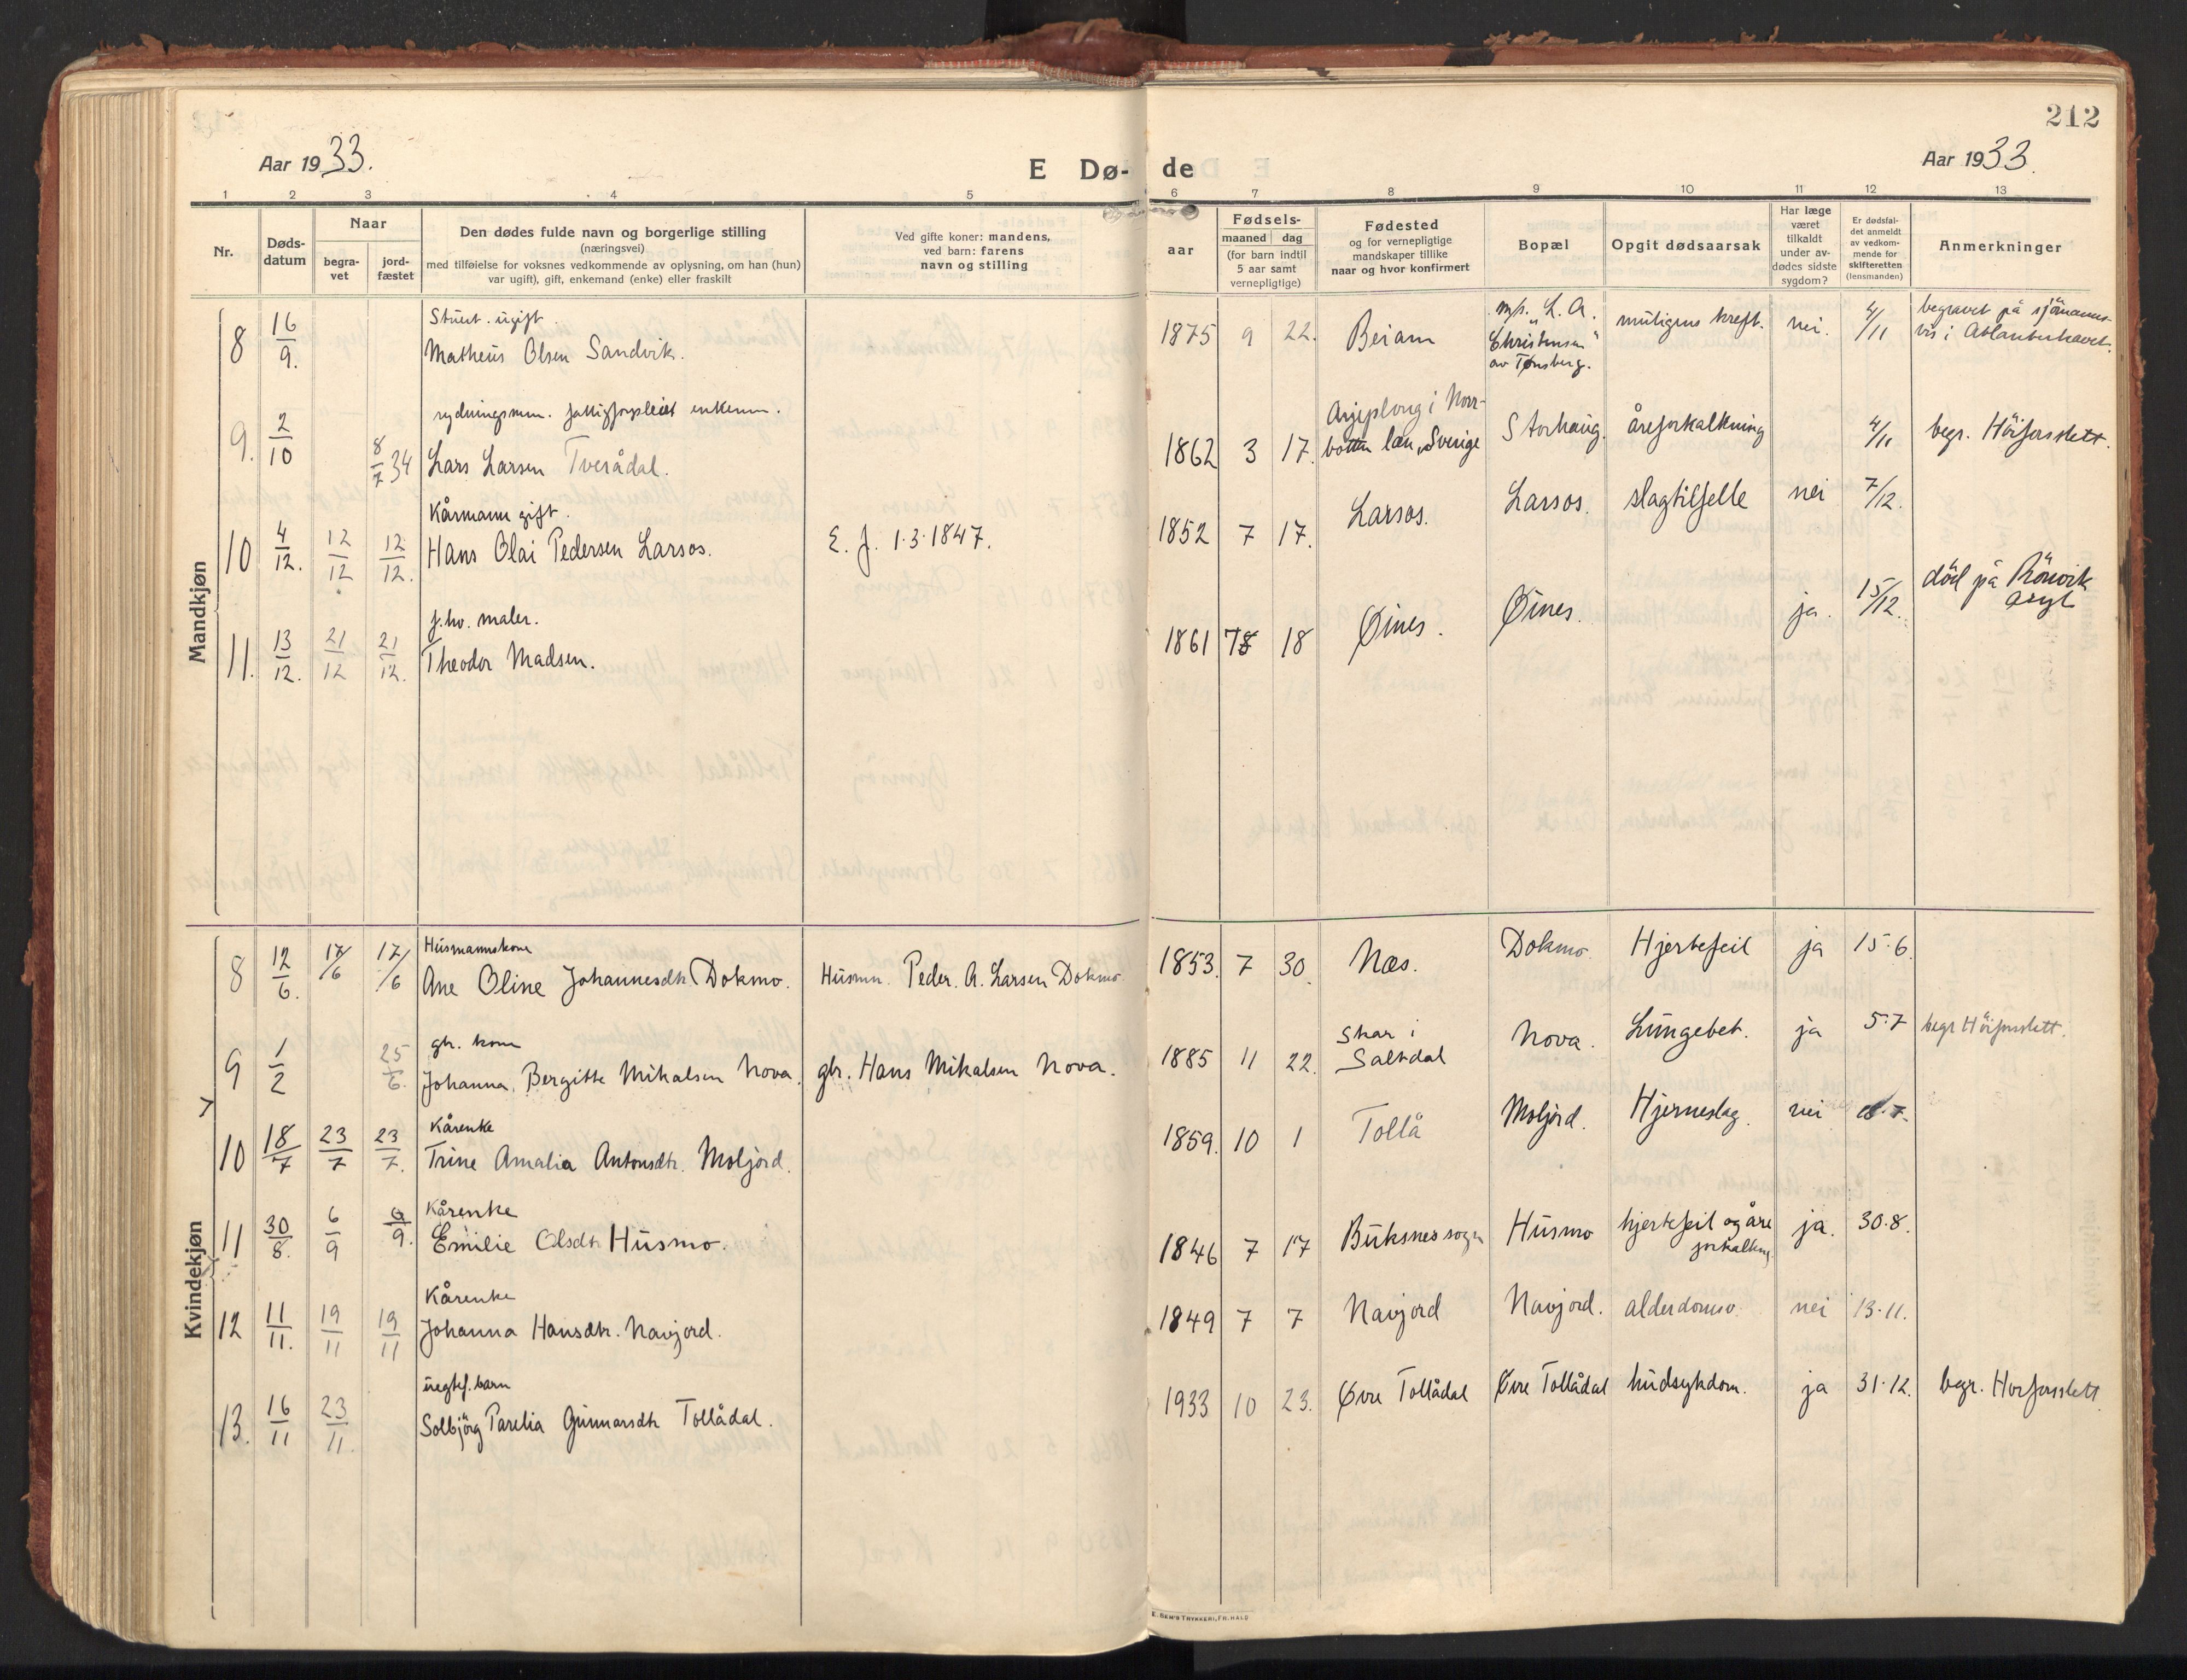 212
Aar 1933.
E Dø-
de
Aar 1933.
1 2 3 4 5 6 7 8 9 10 11 12 13
Nr.
Døds-
datum
Naar
begra-
vet
jord-
fæstet
Den dødes fulde navn og borgerlige stilling
(næringsvei)
med tilføielse for voksnes vedkommende av oplysning, om han (hun)
var ugift), gift, enkemand (enke) eller fraskilt
Ved gifte koner: mandens,
ved barn: farens
navn og stilling
aar
Fødsels-
maaned dag
(for barn indtil
5 aar samt
vernepligtige)
Fødested
og for vernepligtige
mandskaper tillike
naar og hvor konfirmert
Bopæl
Opgit dødsaarsak
Har læge
været
tilkaldt
under av-
dødes sidste
sygdom?
Er dødsfal-
det anmeldt
av vedkom-
mende for
skifteretten
(lensmanden)
Anmerkninger
Mandkjøn
Stuert. ugift
8 16/9. Matheus Olsen Sandvik. 1875 9 22. Beiarn
m/s. "L. A.
Christensen"
av Tønsberg.
nei. 4/11
begravet på sjömanns-
vis i Atlanterhavet.
rydningsmn. fattigforpleiet enkem.
9. 2/10 8/7 34 Lars Larsen Tverådal. 1862 3 17.
Arjeplog i Norr-
botten län, Sverige
Storhaug. åreforkalkning 4/11 begr. Höiforsslett.
Kårmann gift.
10 4/12. 12/12 12/12. Hans Olai Pedersen Larsos. E. f. 1.3.1847. 1852 7 17. Larsos. Larsos. slagtilfelle nei 7/12.
f.hv. maler.
11. 13/12. 21/12 21/12. Theodor Madsen. 1861 7 18 Øines. Øines. ja. 15/12.
död på Rönvik
asyl
Kvindekjøn
Husmannskone
8 12/6. 17/6 17/6 Ane Oline Johannesdtr. Dokmo. Husmn. Peder. A. Larsen Dokmo. 1853. 7 30. Næs. Dokmo. Hjertefeil ja 15.6.
gbr. kone
9 1/2 25/6. Johanna Bergitte Mikalsen Nova. gbr. Hans Mikalsen Nova. 1885 11 22.
Skar i
Saltdal
Nova. Lungebet. ja 5.7 begr Höiforsslett.
Kårenke
10 18/7 23/7 23/7. Trine Amalia Antonsdtr. Moljord. 1859. 10 1 Tollå Moljord. Hjerneslag. nei
Kårenke
11 30/8. 6/9 6/9. Emilie Olsdtr. Husmo. 1846 7 17 Buksnes sogn Husmo
hjertefeil og åre
forkalkng
ja. 30.8.
Kårenke
12 11/11. 19/11 19/11 Johanna Hansdtr. Navjord. 1849 7 7 Navjord Navjord. alderdomsv. nei 13.11.
uegtef. barn
13. 16/11 23/11. Solbjörg Parelia Gunnarsdtr Tollådal. 1933 10 23. Øvre Tollådal Øvre Tollådal hudsykdom. ja 31.12. begr. Horforsslett.
E. SEM'S TRYKKERI, FR. HALD